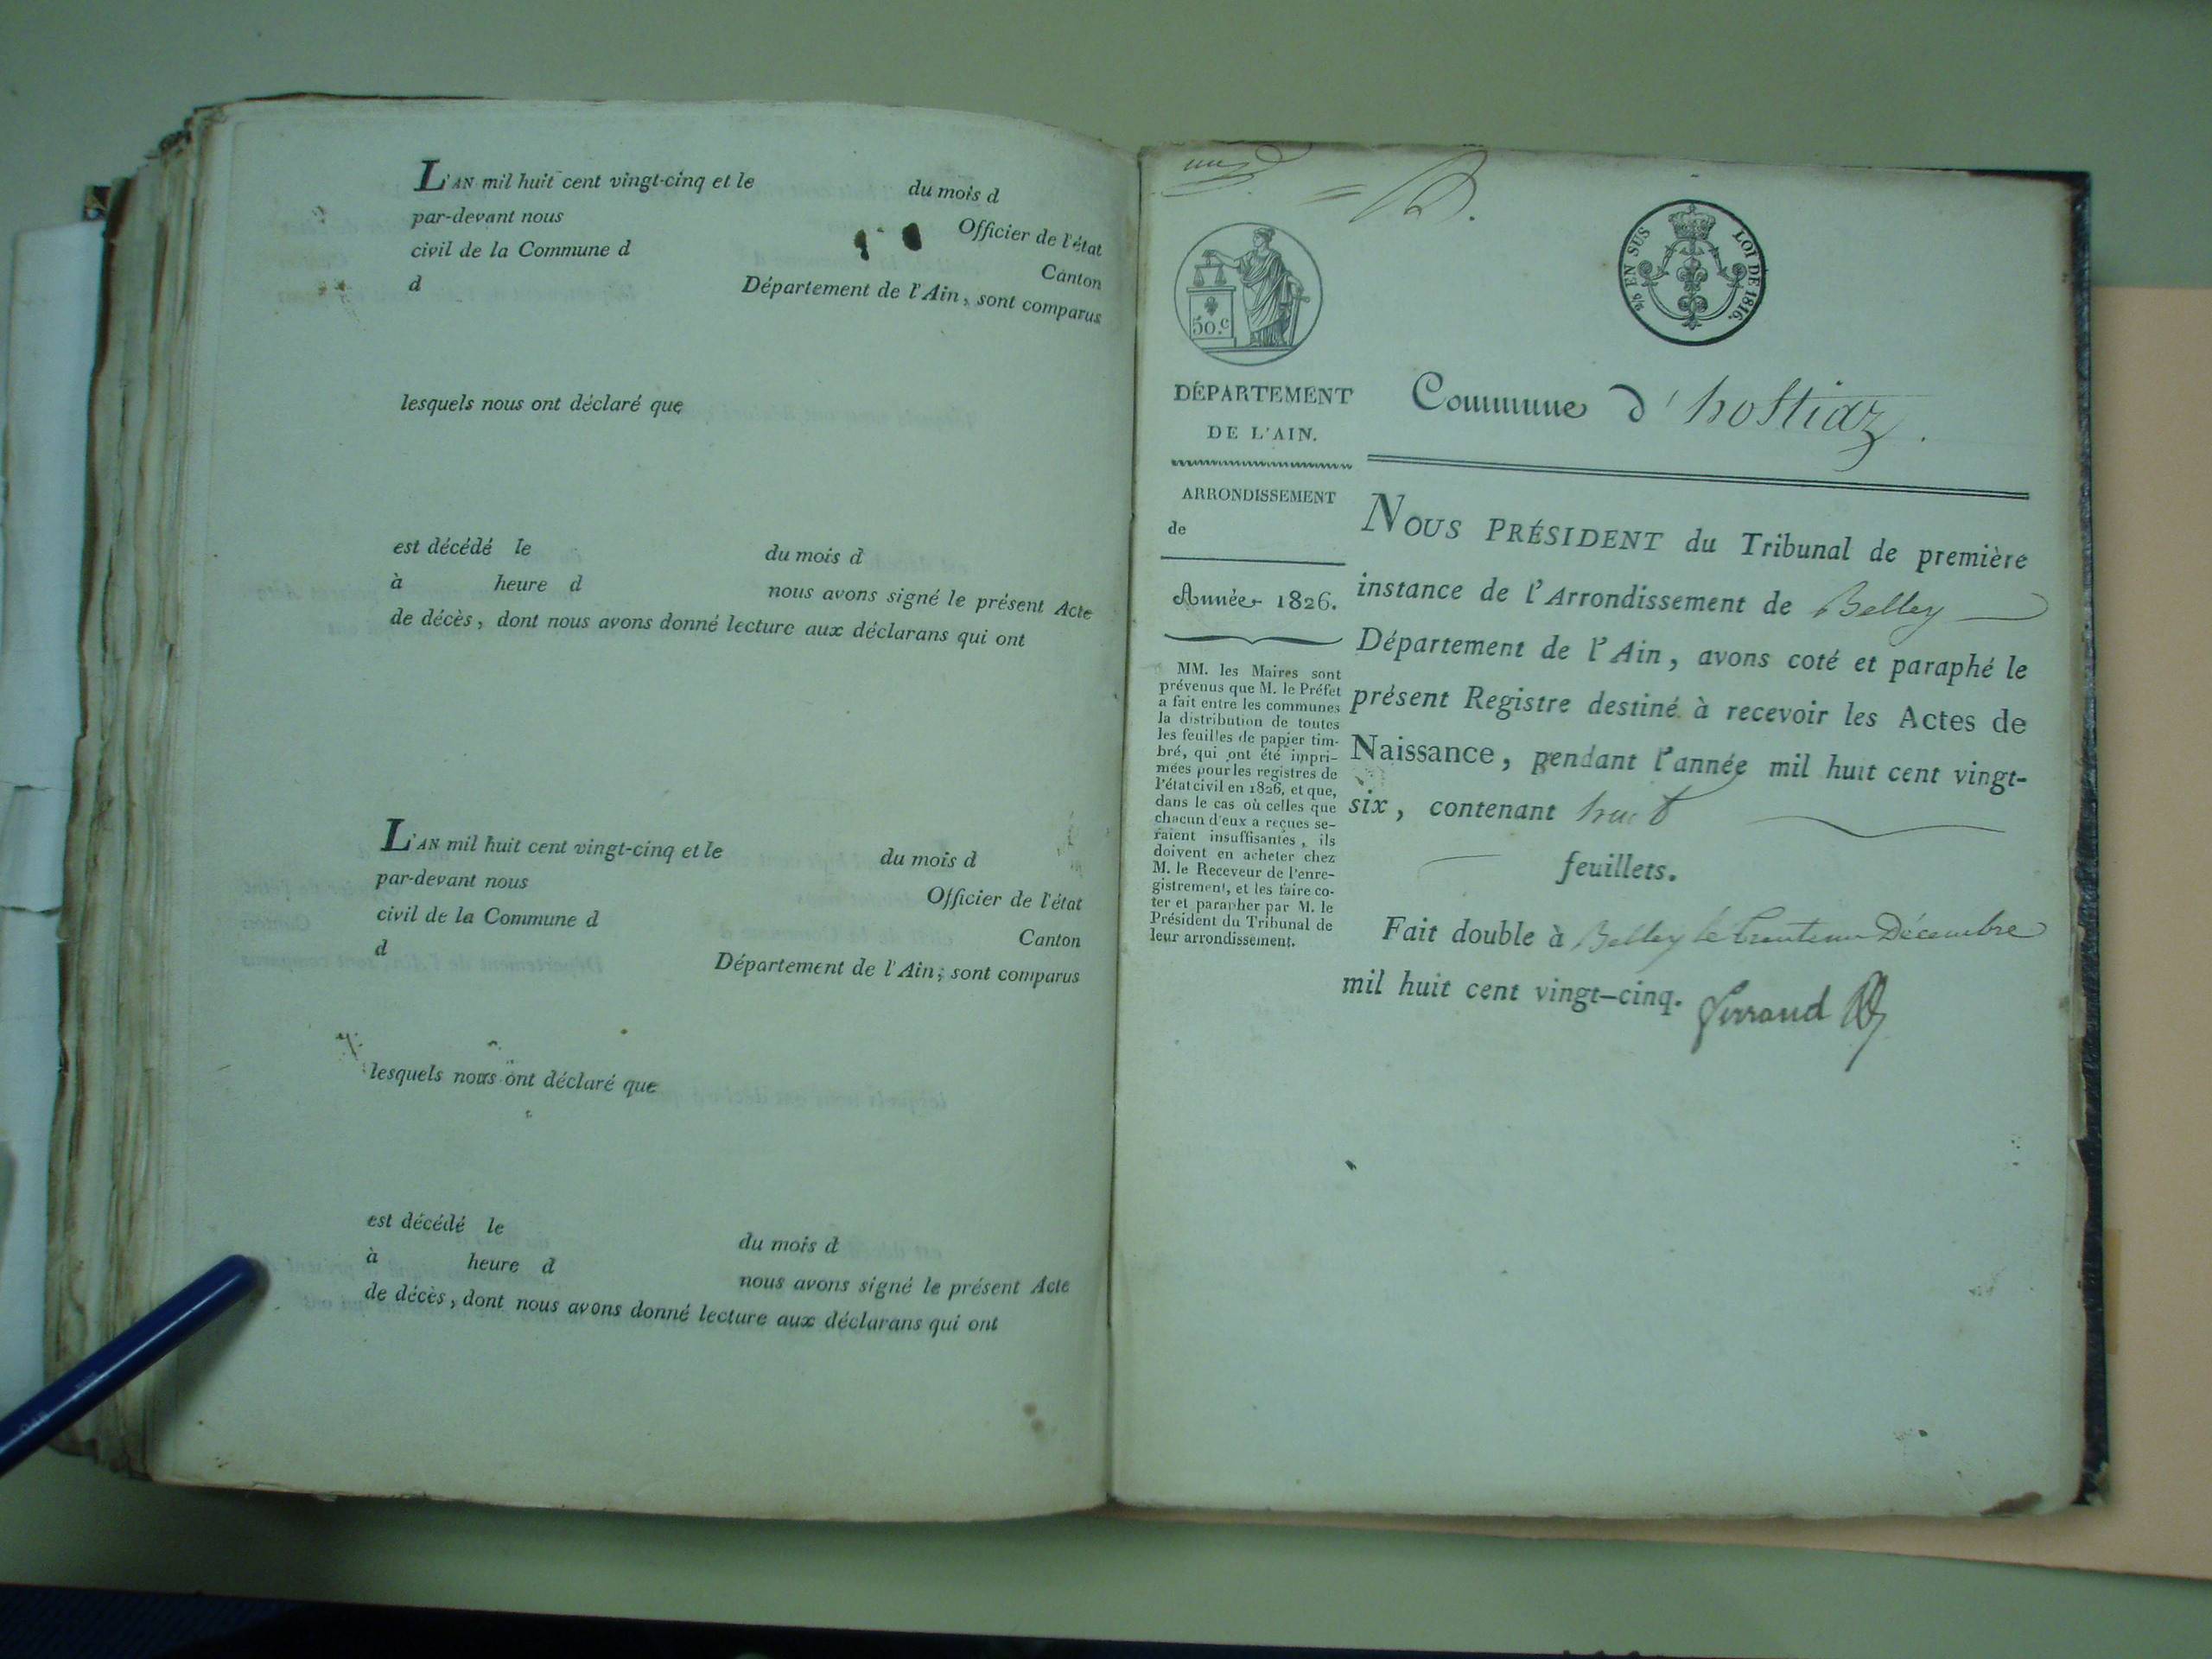 L'AN mil huit cent vingt-cinq et le du mois d
par-devant nous Officier de l'état
civil de la Commune d Canton
d Département de l'Ain, sont comparus
lesquels nous ont déclaré que
est décédé le du mois d
à heure d nous avons signé le présent Acte
de décès, dont nous avons donné lecture aux déclarans qui ont
L'AN mil huit cent vingt-cinq et le du mois d
par-devant nous Officier de l'état
civil de la Commune d Canton
d Département de l'Ain; sont comparus
lesquels nous ont déclaré que
est décédé le du mois d
à heure d nous avons signé le présent Acte
de décès, dont nous avons donné lecture aux déclarans qui ont
50.c
EN SUS LOI DE 1816.
DÉPARTEMENT
DE L'AIN.
ARRONDISSEMENT
de
Année 1826.
MM. les Maires sont
prévenus que M. le Préfet
a fait entre les communes
la distribution de toutes
les feuilles de papier tim-
bré, qui ont été impri-
mées pour les registres de
l'état civil en 1826, et que,
dans le cas où celles que
chacun d'eux a reçues se-
raient insuffisantes, ils
doivent en acheter chez
M. le Receveur de l'enre-
gistrement, et les faire co-
ter et parapher par M. le
Président du Tribunal de
leur arrondissement.
Commune d'hostiaz.
NOUS PRÉSIDENT du Tribunal de première
instance de l'Arrondissement de Belley
Département de l'Ain, avons coté et paraphé le
présent Registre destiné à recevoir les Actes de
Naissance, pendant l'année mil huit cent vingt-
six, contenant huit
feuillets.
Fait double à Belley le trente un Décembre
mil huit cent vingt-cinq. Ferrand